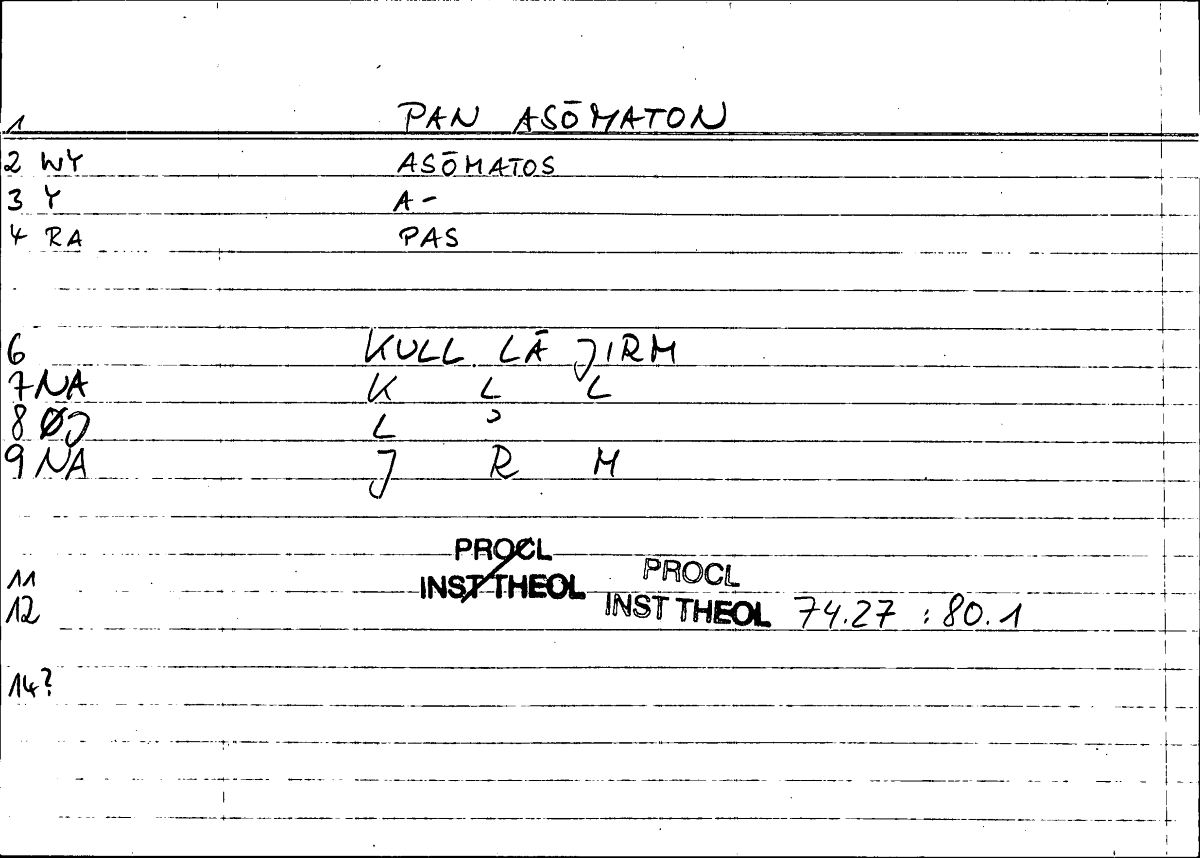 1 PAN ASŌMATON
2 WY ASŌMATOS
3 Y A-
4 RA PAS
6 KULL LĀ JIRM
7 NA K L L
8 ØJ L ʾ
9 NA J R M
PROCL
INST THEOL
PROCL
11
12 INST THEOL 74.27 : 80.1
14?